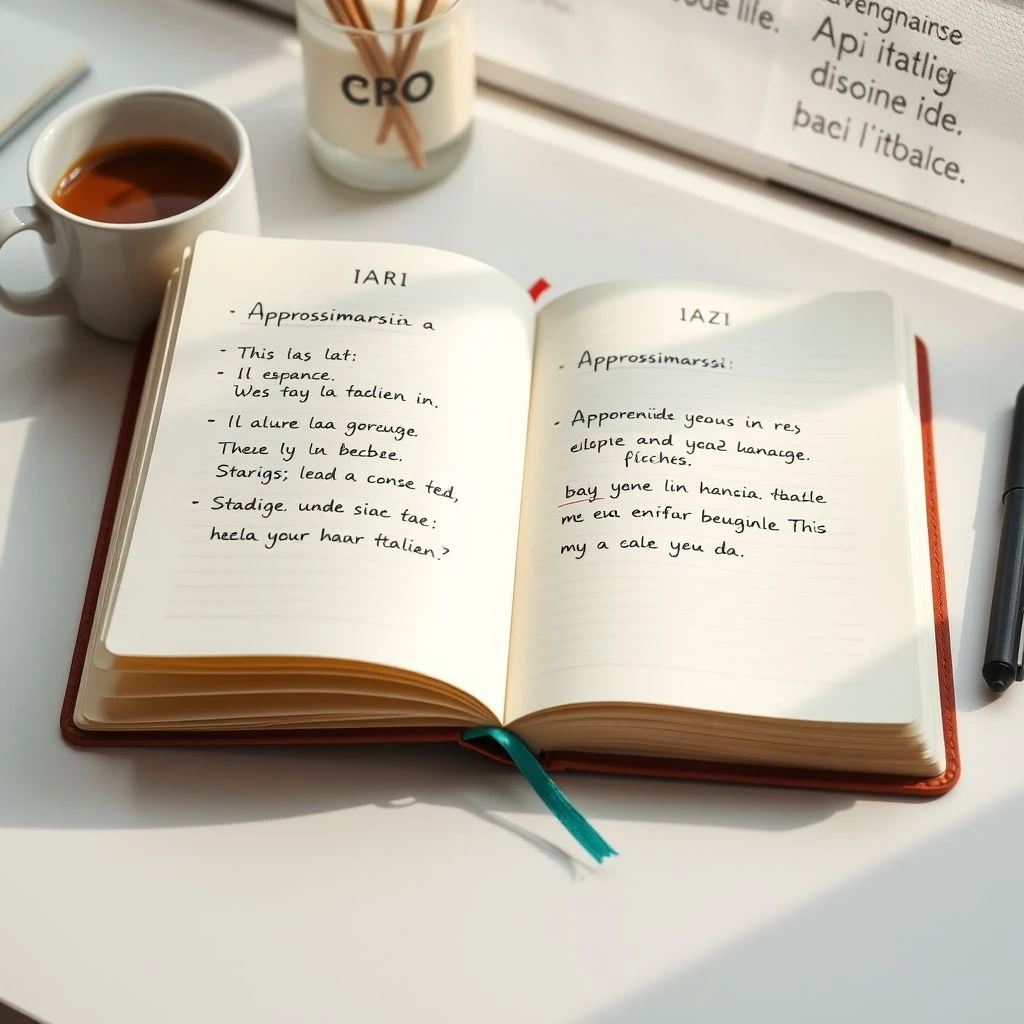 CRO
Api itatlig
disoine ide.
baci l'itbalce.
IARI
- Approssimarsiin a
- This las lat:
- Il espance.
Wes tay la tadien in.
- Il alure laa goreuge.
These ly ln becbee.
Starigs; lead a conse ted,
- Stadige. unde siac tae:
heela your haar ttalien.?
IAZI
- Approssimarssi:
- Apporeniide yeous in res
eilopie and yeaz hanacge.
ficches.
bay yone lin hansia. tbatle
me eua enifar beuginle This
my a cale yeu da.